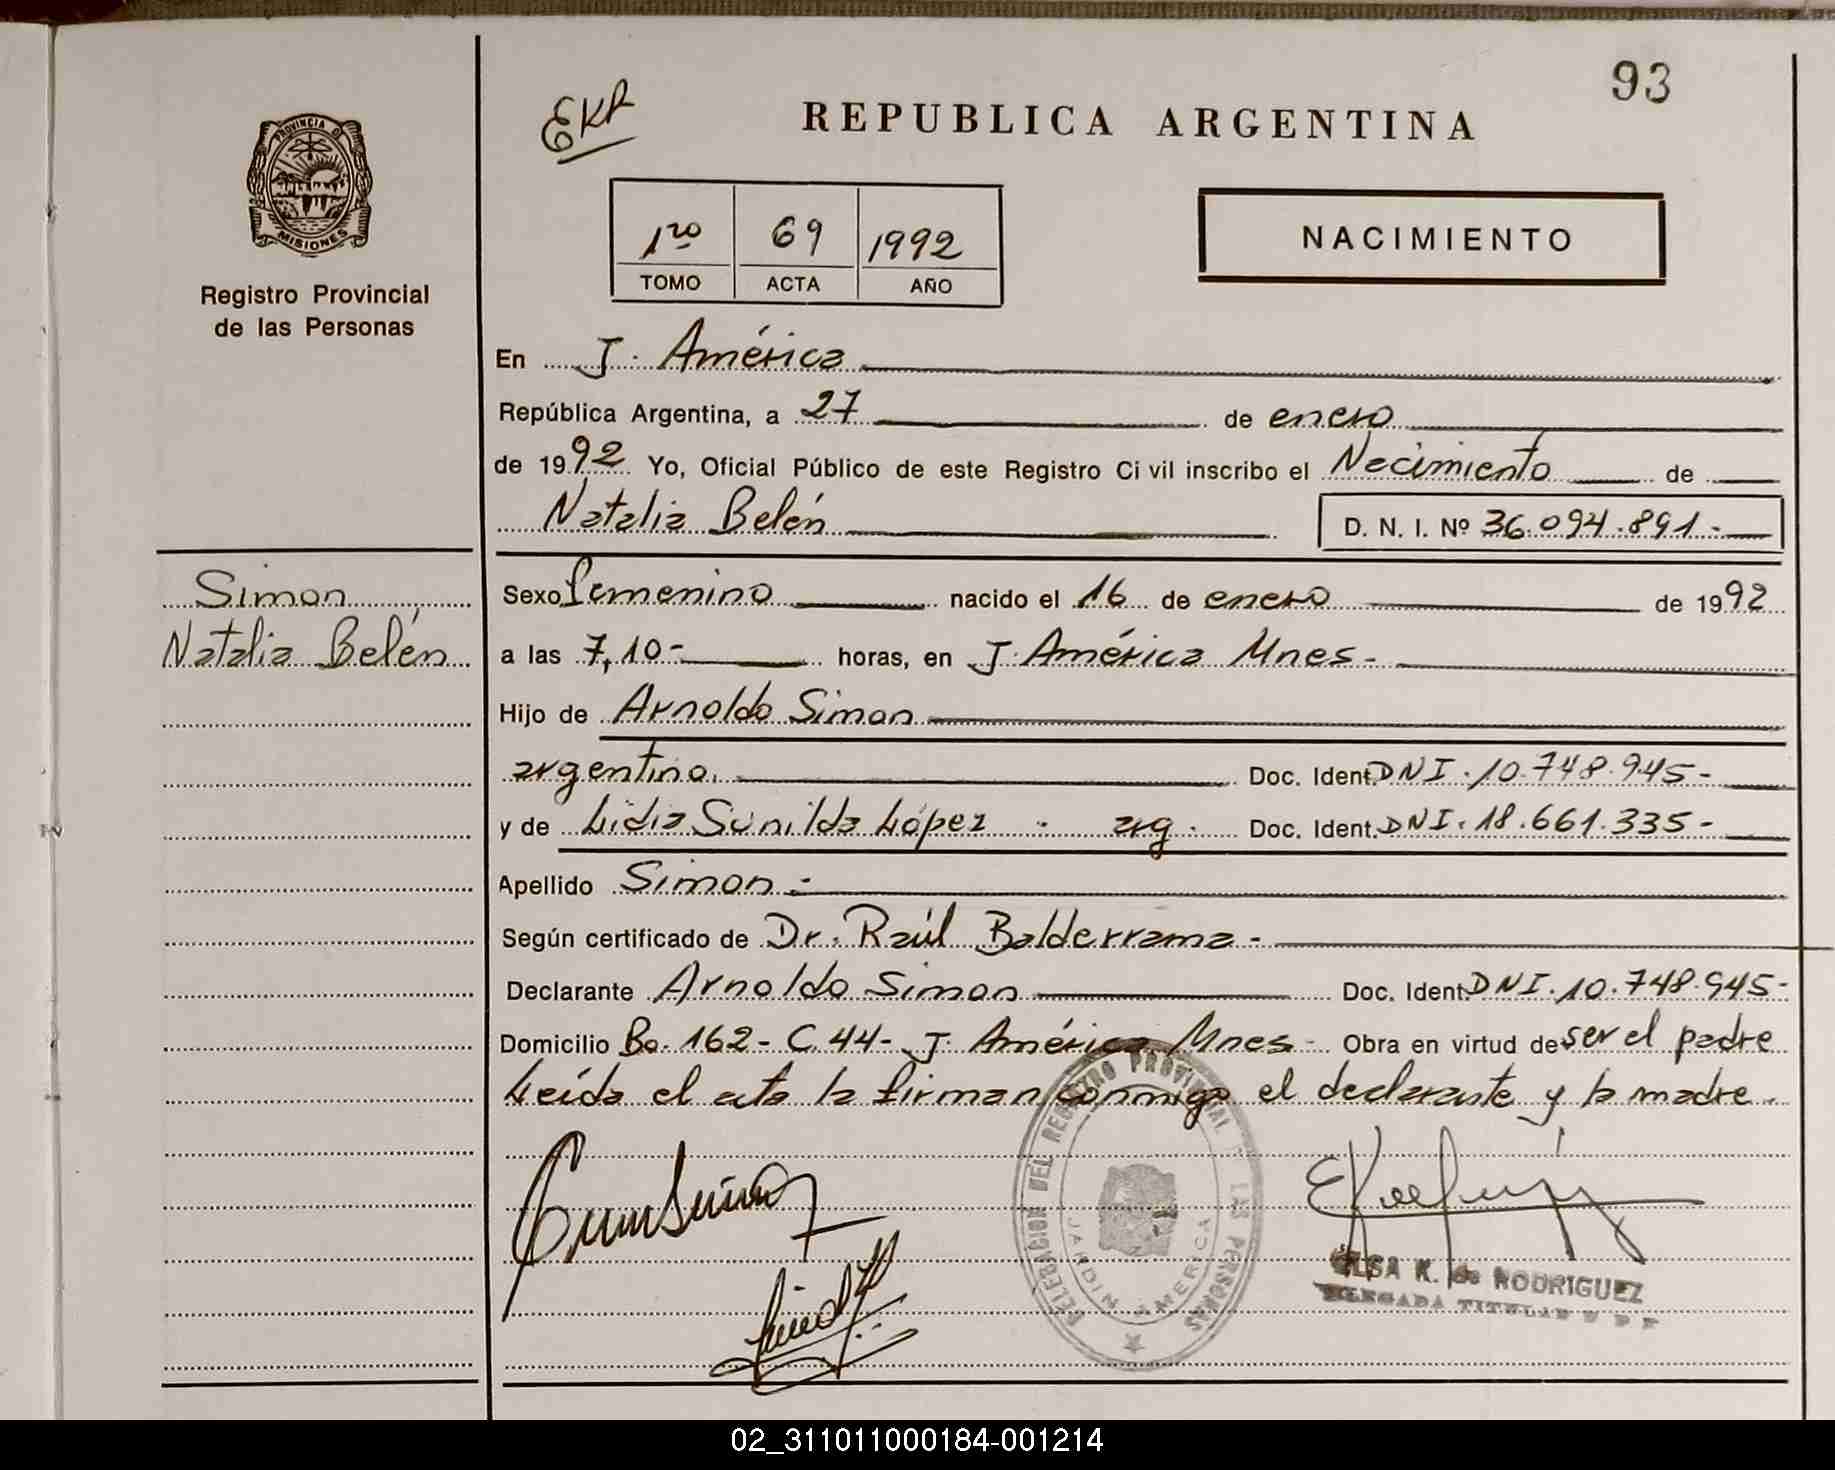 93
EKR
REPUBLICA ARGENTINA
PROVINCIA DE
MISIONES
Registro Provincial
de las Personas
1ro 69 1992
TOMO ACTA AÑO
NACIMIENTO
En J. América
República Argentina, a 27 de enero
de 1992 Yo, Oficial Público de este Registro Civil inscribo el Nacimiento de
Natalia Belén D. N. I. Nº 36.094.891.-
Simon
Natalia Belén
Sexo femenino nacido el 16 de enero de 1992
a las 7,10- horas, en J. América Mnes-
Hijo de Arnoldo Simon
argentino. Doc. Ident. DNI. 10.748.945-
y de Lidia Sunilda López - arg. Doc. Ident. DNI. 18.661.335-
Apellido Simon -
Según certificado de Dr. Raúl Balderrama -
Declarante Arnoldo Simon Doc. Ident. DNI. 10.748.945-
Domicilio Bo. 162- C. 44- J. América Mnes- Obra en virtud de ser el padre
Leída el acta la firman conmigo el declarante y la madre.
DELEGACION DEL REGISTRO PROVINCIAL DE LAS PERSONAS
JARDIN AMERICA
ELSA K. de RODRIGUEZ
DELEGADA TITULAR
02_311011000184-001214